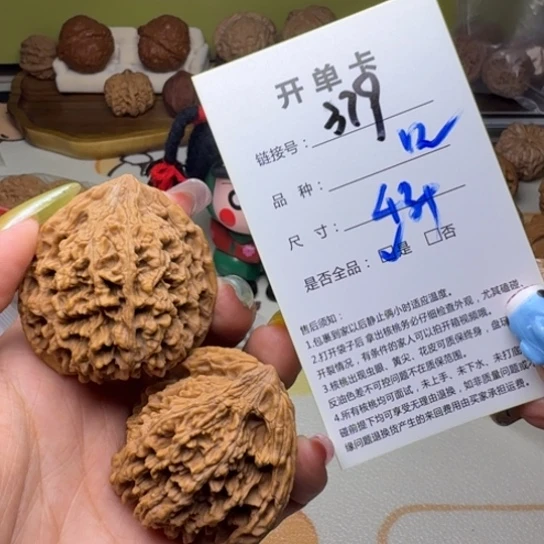 开单卡
链接号: 379
品种:
尺寸: 43+
是否全品: ☑是 □否
售后须知:
1.包裹到家以后静止俩小时适应温度。
2.打开袋子后 拿出核桃务必仔细检查外观, 尤其磕碰、
开裂情况, 有条件的家人可以拍开箱视频哦。
3.核桃出现虫眼、黄尖、花皮可质保终身, 盘
反油色差不可控问题不在质保范围。
4.所有核桃均可面试, 未上手、未下水、未打底
碰前提下均可享受无理由退换, 如非质量问题或
缘问题退换货产生的来回费用由买家承担运费。